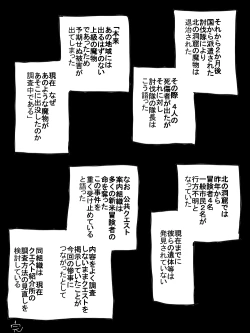 それから２か月後
国から派遣された
討伐隊により
北の洞窟の魔物は
退治された
その際　４人の
死傷者が出たが
それに対し
討伐隊の隊長は
こう語った
「本来
あの地域には
出るはずのない
上級の魔物で
あったため
予期せぬ被害が
出てしまった
現在　なぜ
あのような魔物が
あそこに出没したのか
調査中である」
北の洞窟では
昨年から
冒険者４名
一般市民２名が
行方不明と
なっていたが
現在までに
彼らの遺体等は
発見されていない
なお　公共クエスト
案内組織は
多くの新米冒険者の
命を奪った
この事件を
重く受け止めている
と語った
内容をよく調査
しないままクエストを
掲示していたことが
今回の惨事に
つながったとして
同組織は　現在
クエスト紹介所の
調査方法の見直しを
検討している